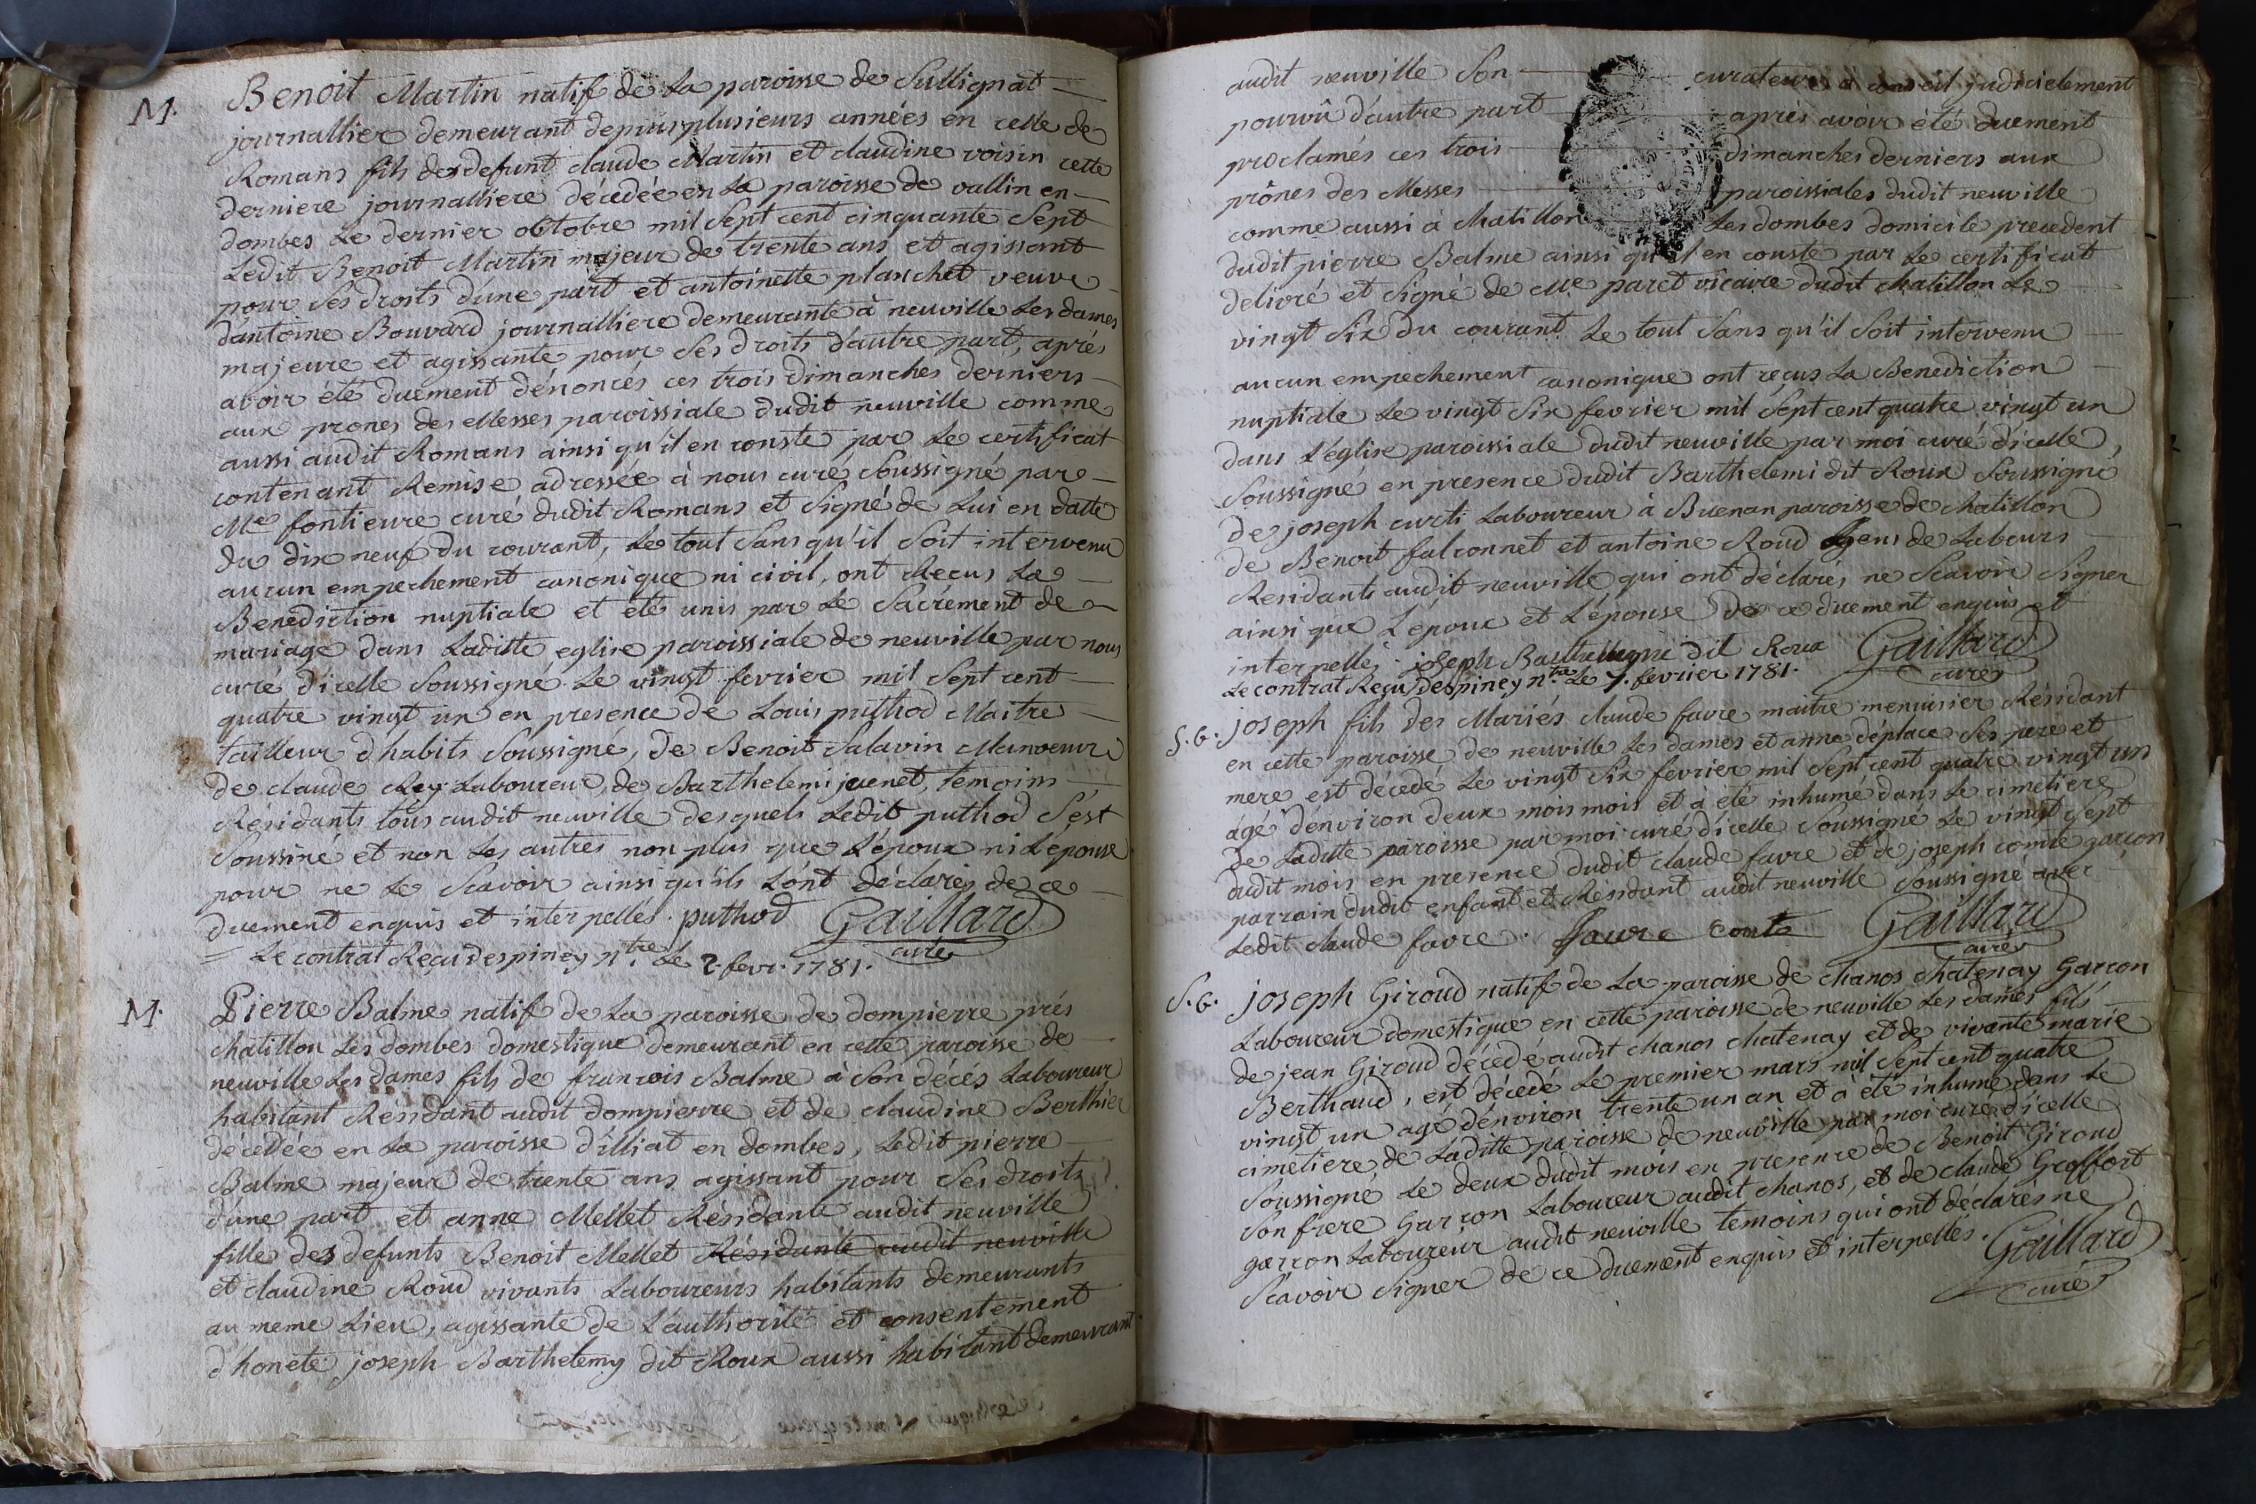 M. Benoit Martin natif de la paroisse de Sulignat
journallier demeurant depuis plusieurs années en celle de
Romans fils des defunt claude Martin et claudine voisin cette
derniere journalliere décedée en la paroisse de vallin en
dombes le dernier octobre mil sept cent cinquante sept
ledit Benoit Martin majeur de trente ans et agissant
pour ses droits d'une part et antoinette planchet veuve
dantoine Bouvard journalliere demeurante à neuville les dames
majeure et agissante pour ses droits d'autre part, aprés
avoir été duement dénoncés ces trois dimanches derniers
aux prones des Messes paroissiale dudit neuville comme
aussi audit Romans ainsi qu'il en conste par le certificat
contenant Remise adressée à nous curé soussigné par
Me fontieure curé dudit Romans et signé de lui en datte
du dix neuf du courant, le tout sans qu'il soit intervenu
aucun empechement canonique ni civil, ont Recus la
Benediction nuptiale et été unis par le Sacrement de
mariage dans laditte eglise paroissiale de neuville par nous
curé d'icelle soussigné le vingt fevrier mil sept cent
quatre vingt un en presence de Louis puthod Maitre
tailleur d'habits soussigné, de Benoit Salavin Manoeuvre
de claude Rey Laboureur, de Barthelemi juenet, temoins
Résidants tous audit neuville desquels ledit puthod s'est
soussiné et non les autres non plus que l'époux ni l'epouse
pour ne le scavoir ainsi qu'ils l'ont déclarés de ce
duement enquis et interpellés. puthod Gaillard
curé
= Le contrat Reçu Despiney Ntre. le 2. fevr. 1781.
M. Pierre Balme natif de la paroisse de dompierre prés
chatillon les dombes domestique demeurant en cette paroisse de
neuville les dames fils de francois Balme à son décés Laboureur
habitant Résidant audit dompierre et de claudine Berthier
décedée en la paroisse d'illiat en dombes, ledit pierre
Balme majeur de trente ans agissant pour ses droits
d'une part et anne Mellet Résidante audit neuville
fille des defunts Benoit Mellet Résidante audit neuville
et claudine Roud vivants Laboureurs habitants demeurants
au meme Lieu, agissante de l'authorité et consentement
d'honete joseph Barthelemy dit Roux aussi habitant demeurant
audit neuville son curateur à conseil judicielement
pourvû d'autre part aprés avoir été duement
proclamés ces trois dimanches derniers aux
prônes des Messes paroissiales dudit neuville
comme aussi à chatillon les dombes domicile precedent
dudit pierre Balme ainsi qu'il en conste par le certificat
delivré et signé de Me paret vicaire dudit chatillon le
vingt six du courant le tout sans qu'il soit intervenu
aucun empechement canonique ont reçus la Benediction
nuptiale le vingt six fevrier mil sept cent quatre vingt un
dans l'église paroissiale dudit neuville par moi curé d'icelle,
soussigné en presence dudit Barthelemi dit Roux soussigné
de joseph curti Laboureur à Buenan paroisse de chatillon
de Benoit falconnet et antoine Roud gens de Labeurs
Residants audit neuville qui ont déclarés ne scavoir signer
ainsi que l'époux et l'épouse de ce duement enquis et
interpellés. joseph Barthellemi dit Roux Gaillard
curé
Le contrat Reçu Despiney ntre le 7. fevrier 1781.
S.G. joseph fils des Mariés claude favre maitre menuisier Résidant
en cette paroisse de neuville les dames et anne déplace ses pere et
mere est décedé le vingt six fevrier mil sept cent quatre vingt un
âgé d'environ deux mois mois et à été inhumé dans le cimetiere
de laditte paroisse par moi curé d'icelle soussigné le vingt sept
dudit mois en presence dudit claude favre et de joseph comte garcon
parrain dudit enfant et Résidant audit neuville soussigné avec
ledit claude favre. faure comte Gaillard
curé
S.G. joseph Giroud natif de la paroisse de chanos chatenay Garcon
Laboureur domestique en cette paroisse de neuville les dames fils
de jean Giroud décedé audit chanos chatenay et de vivante marie
Berthaud, est décedé le premier mars mil sept cent quatre
vingt un agé d'environ trente un an et à été inhumé dans le
cimetiere de laditte paroisse de neuville par moi curé d'icelle
soussigné le deux dudit mois en presence de Benoit Giroud
son frere Garcon Laboureur audit chanos, et de claude Groffort
garcon Laboureur audit neuville temoins qui ont déclarés ne
scavoir signer de ce duement enquis et interpellés. Gaillard
curé